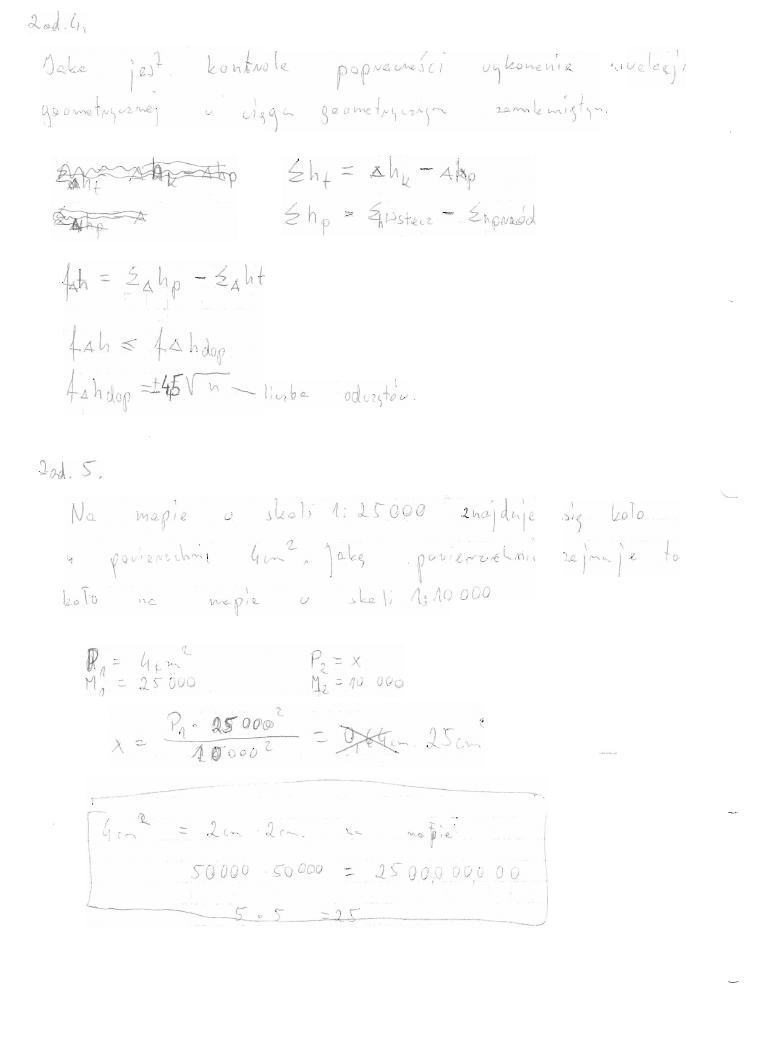 Zad. 4.
Jaka jest kontrola poprawności wykonania niwelacji
geometrycznej w ciągu geometrycznym zamkniętym.
Σht = Δhk - Δhp
Σhp = Σhwstecz - Σhprzód
fΔh = ΣΔhp - ΣΔht
fΔh ≤ fΔhdop
fΔhdop = ±4√n — liczba odczytów.
Zad. 5.
Na mapie w skali 1:25000 znajduje się koło
o powierzchni 4cm². Jaką powierzchnię zajmuje to
koło na mapie w skali 1:10000
P₁ = 4cm² P₂ = x
M₁ = 25000 M₂ = 10 000
x = P₁ · 25000² / 10000² = 25cm²
4cm² = 2cm · 2cm. na mapie
50000 · 50000 = 2500,000,000
5 · 5 = 25